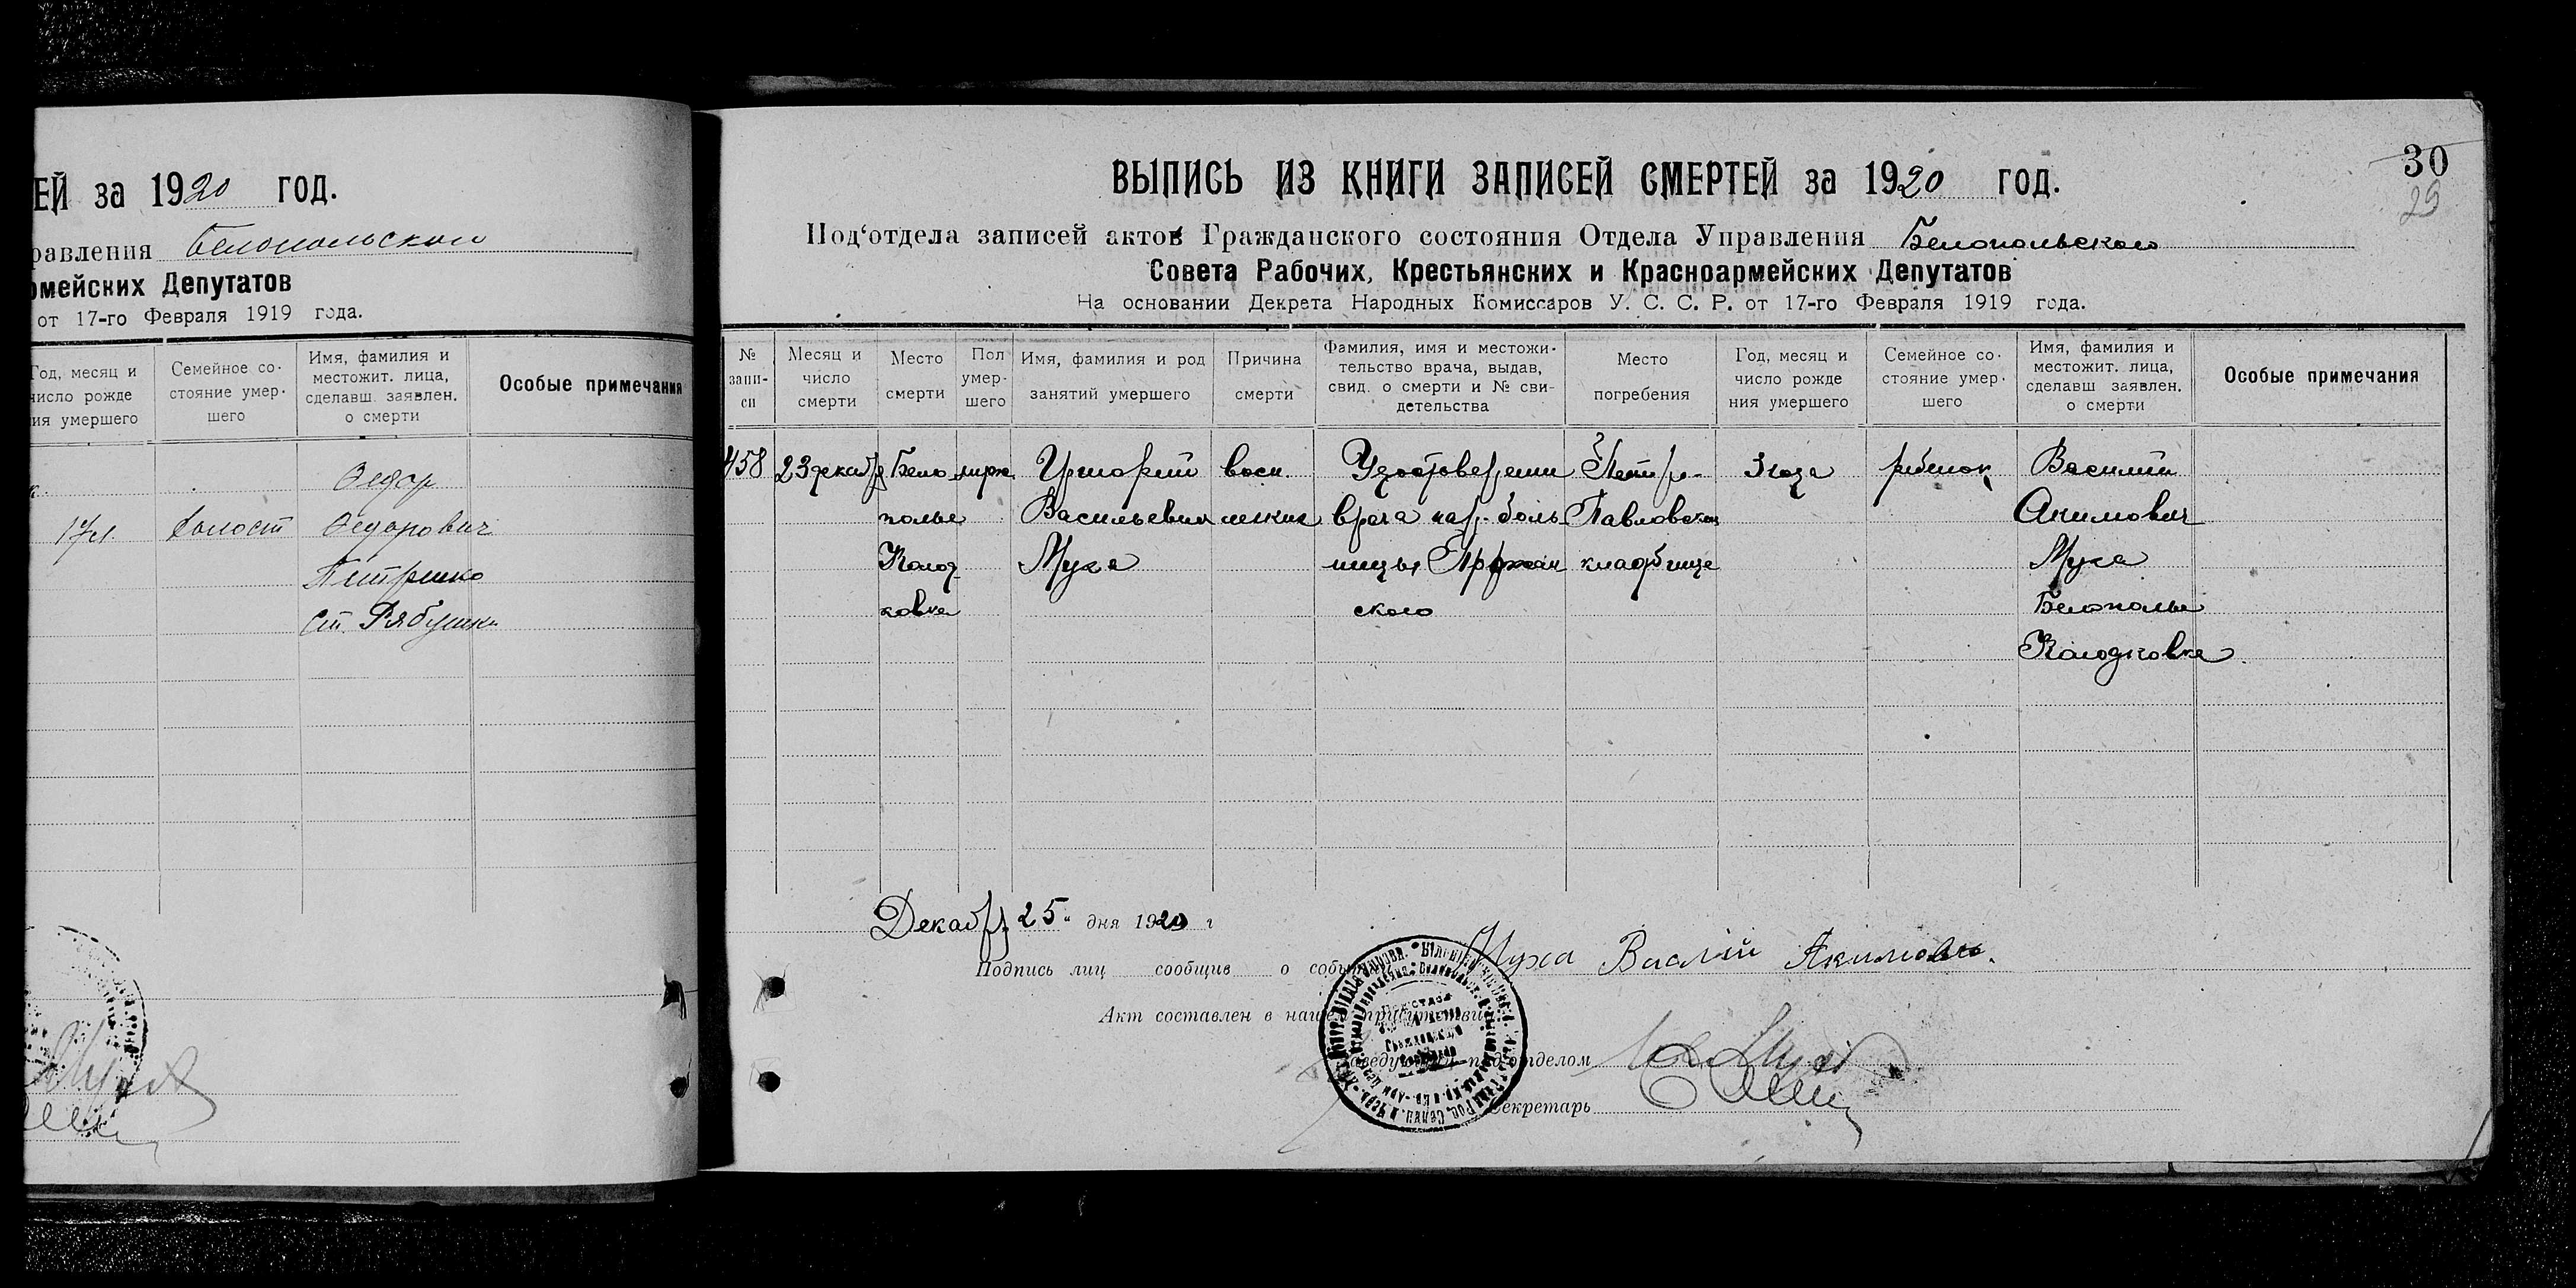 ЕЙ за 1920 год.
равления Белопольской
рмейских Депутатов
от 17-го Февраля 1919 года.
Год, месяц и число рожде ия умершего
Семейное со-стояние умер-шего
Имя, фамилия и местожит. лица, сделавш. заявлен. о смерти
Особые примечания
Федор
17 л. холост Федорович
Петренко
Ст. Рябушки
30
29
ВЫПИСЬ ИЗ КНИГИ ЗАПИСЕЙ СМЕРТЕЙ за 1920 год.
Под'отдела записей актов Гражданского состояния Отдела Управления Белопольского
Совета Рабочих, Крестьянских и Красноармейских Депутатов
На основании Декрета Народных Комиссаров У. С. С. Р. от 17-го Февраля 1919 года.
№ запи-си
Месяц и число смерти
Место смерти
Пол умер-шего
Имя, фамилия и род занятий умершего
Причина смерти
Фамилия, имя и местожи-тельство врача, выдав, свид. о смерти и № сви-детельства
Место погребения
Год, месяц и число рожде ния умершего
Семейное со-стояние умер-шего
Имя, фамилия и местожит. лица, сделавш заявлен. о смерти
Особые примечания
458 23 декабря Бело муж. восп. Удостоверении Петро- 3 года ребенок Василий
полье Васильевич легких врача нар. боль Павловском Акимович
Колод Муха ницы кладбище Муха
ковка ского Белополье
Колодковка
Декабря 25 дня 1920 г
Подпись лиц сообщив о собы Муха Василий Акимович.
Акт составлен в нашем присутствии
Заведующий подотделом
Секретарь